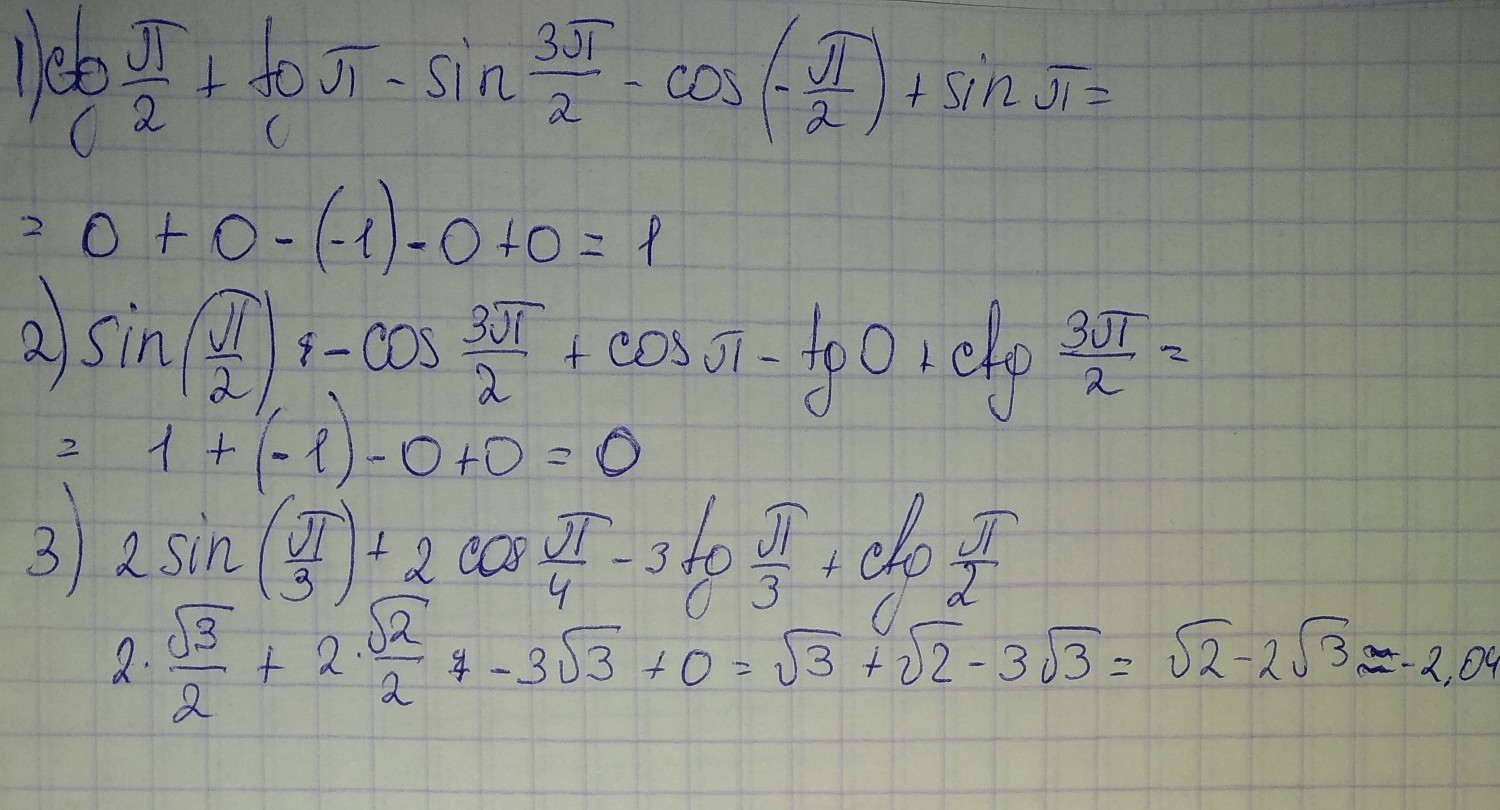 1) ctg π/2 + tg π - sin 3π/2 - cos (-π/2) + sin π =
= 0 + 0 - (-1) - 0 + 0 = 1
2) sin (π/2) - cos 3π/2 + cos π - tg 0 + ctg 3π/2 =
= 1 + (-1) - 0 + 0 = 0
3) 2 sin (π/3) + 2 cos π/4 - 3 tg π/3 + ctg π/2
2 · √3/2 + 2 · √2/2 - 3√3 + 0 = √3 + √2 - 3√3 = √2 - 2√3 ≈ -2,04